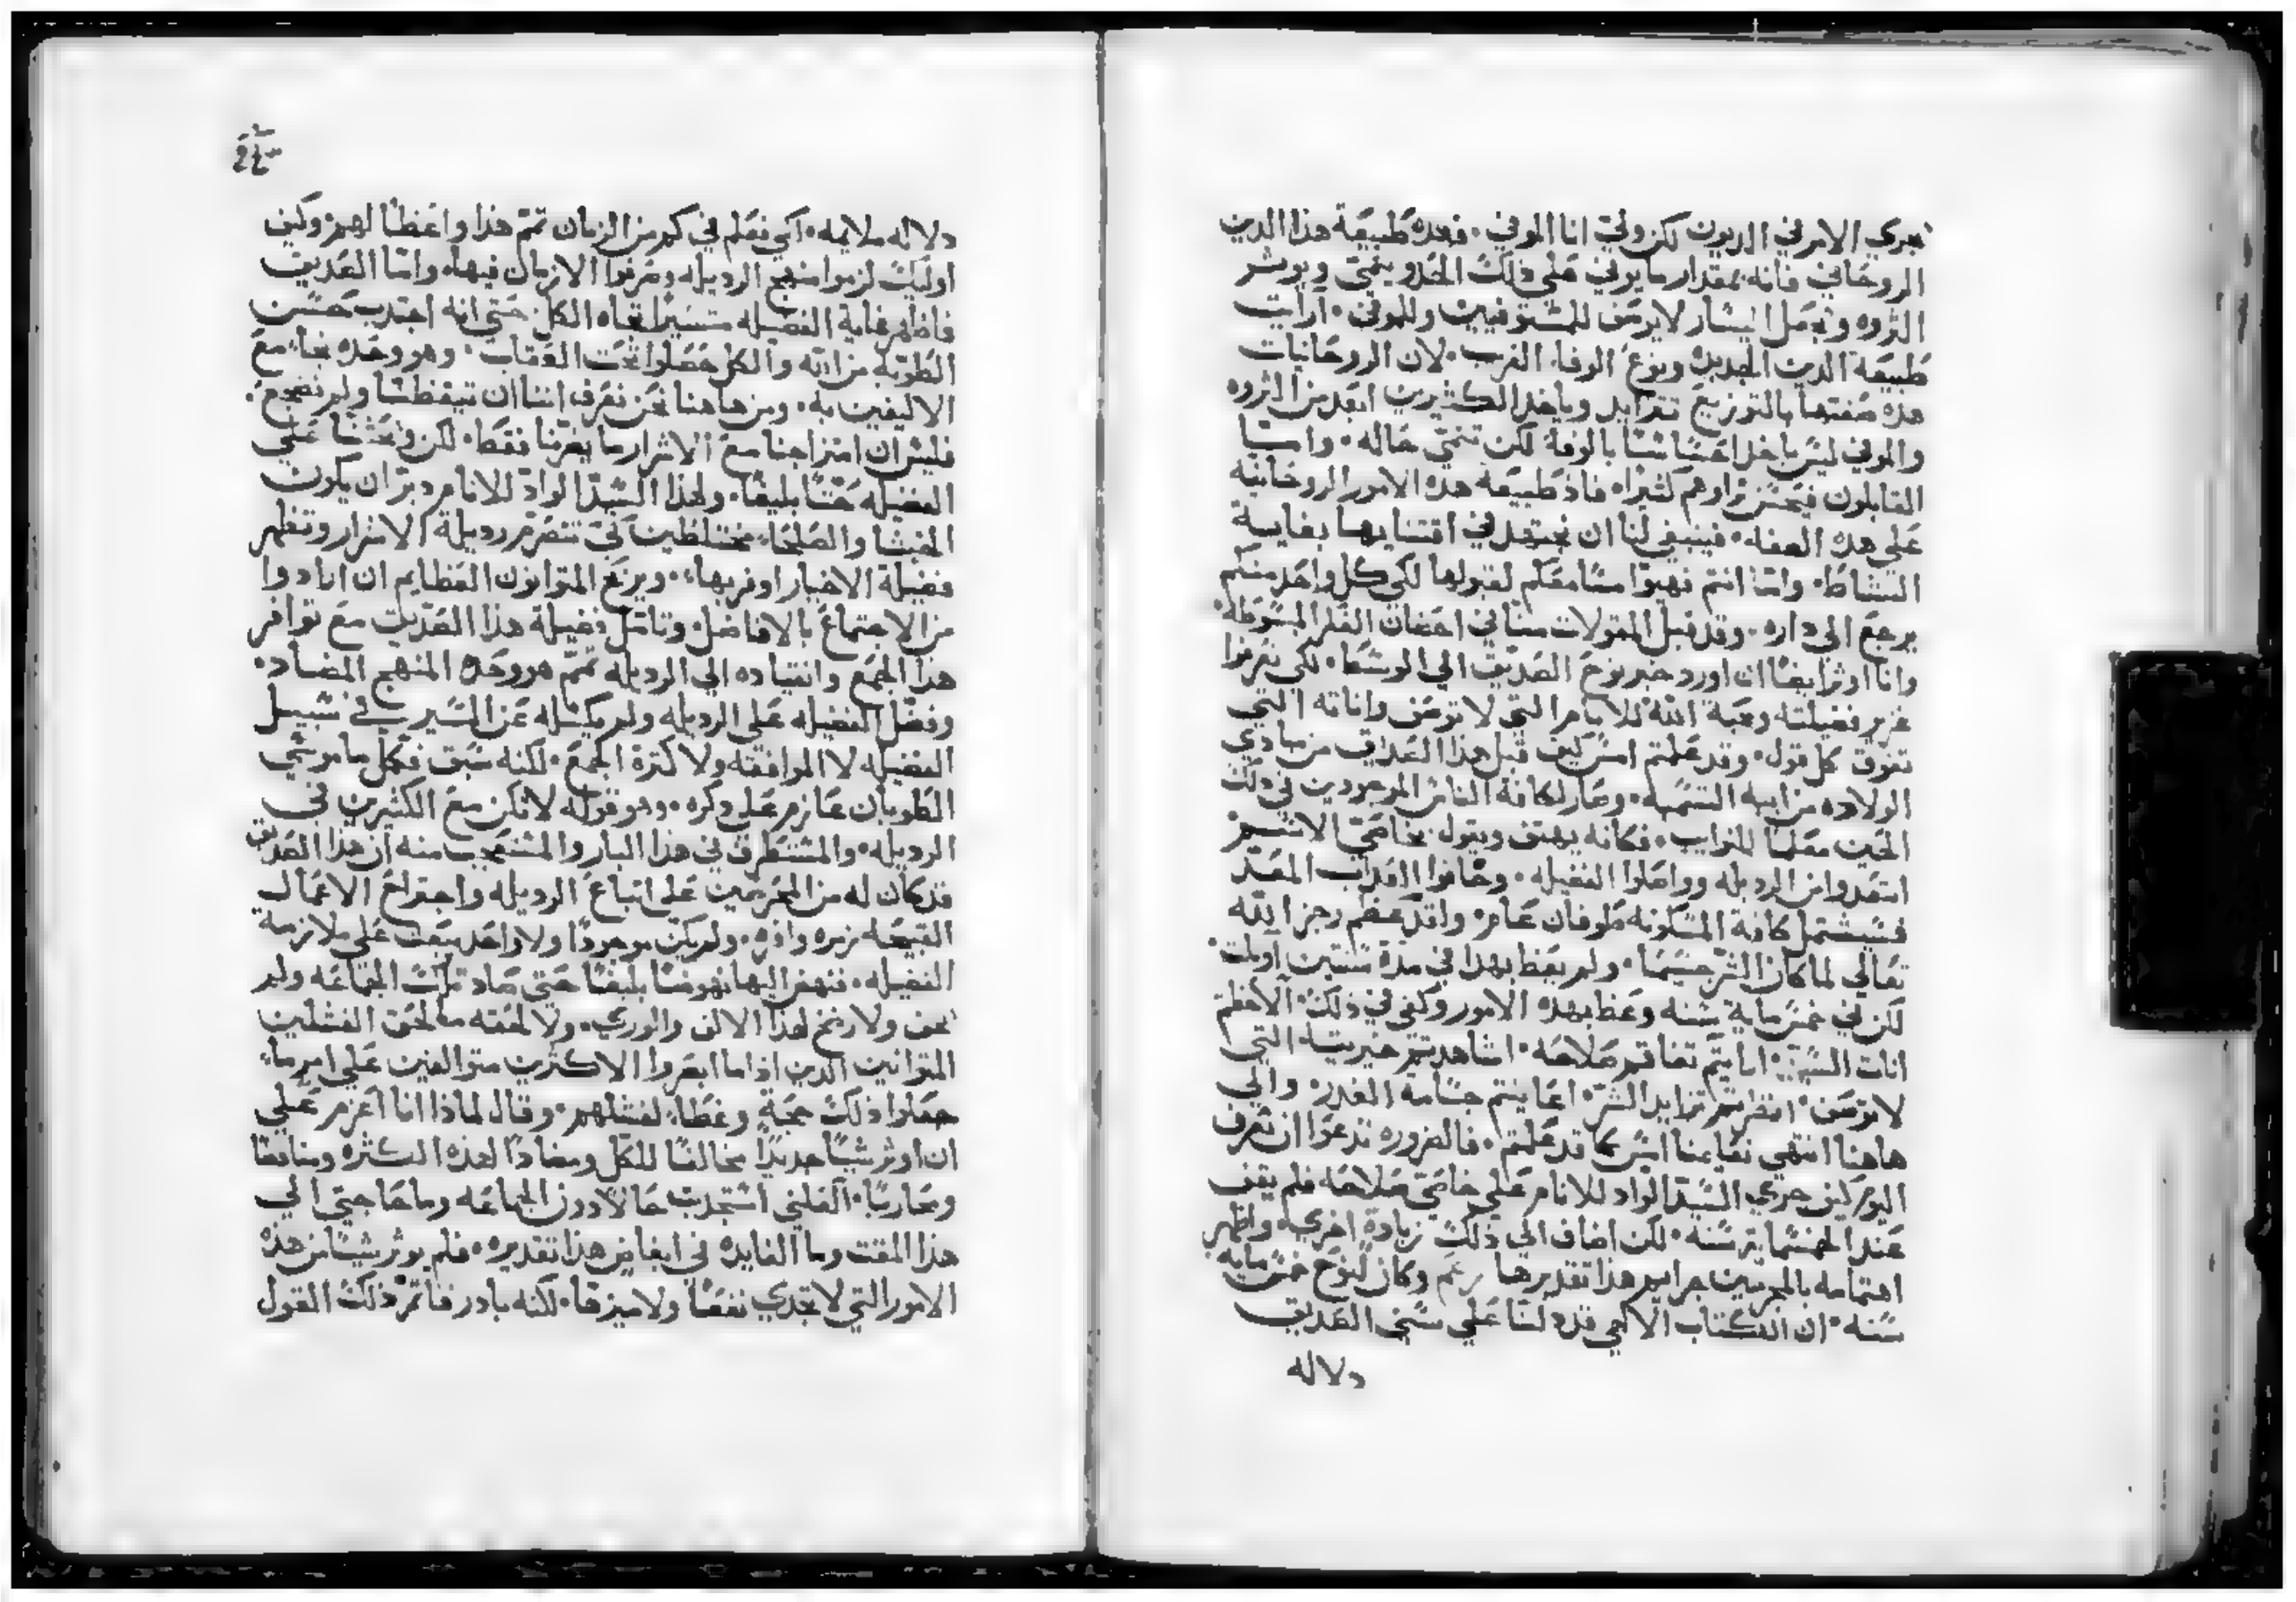 يجري الامر في الديون لكن ولي انا الموفي · فهده طبيعة هذا الدين
الروحاني فانه بمقدار ما يوفي على ذلك الحدو ينمي ويوثر
الثروه وتجعل اليسار لا يوصف للمستوفيين وللموفى · ارايت
طبيعة الدين الجديده ونوع الوفا الغريب · لان الروحانيات
هذه صفتها بالتوزيع تتزايد وياخذ الكثيرين ابعد من الثروه
والموفي ليس ياخذ احسّاسًا بالوفا لكن تنمي حاله · وامّا
القابلون فيحسن ثراوهم كثيرًا · فاذ طبيعة هذه الامور الروحانيه
على هذه الصفه · فينبغي لنا ان نجتهد في اقتنايها بغاية
النشاط · وامّا انتم فهيوا مسامعكم لقبولها لكي كل واحد منكم
يرجع الى داره · وقد قبل المقولات منّا في احضان الفكر المبسوطة ·
وانا اوثر ايضًا ان اورد خبر نوح الصديق الي الوسط · لكي تعرفوا
غزير فضيلته ومحبة الله للانام التي لا توصف واناته التي
تفوق كل قول · وقد علمتم امس كيف قبل هذا الصديق من مبادي
الولاده من ابيه التسميه · وصار لكافة الناس الموجودين في ذلك
الحين معلمًا للنوايب · فكانه يهتف ويقول بخاصّة الاسم
ابتعدوا من الرديله وواصلوا الفضيله · وخافوا العذاب المعدّ
فسيشتمل كافة المسكونه طوفان عام · واقد عظم رجز الله
تعالى لما كان الشر جسيمًا · ولم يعظ بهدا في مدة سنتين اوثلت ·
لكن في خمس ماية سنه وعظ بهده الامور وكفى في ذلك · الاحظتم
انات السيّد · ارايتم تفاقم صلاحه · اشاهدتم خيريته التي
لا توصف · انظرتم تزايد الشر · اعاينتم جسامة الغدر · والي
هاهنا انتهي تعليمنا امس كما قد علمتم · فالضروره تدعوا ان نعرف
اليوم كيف جري السيّد الواد للانام على خاصّة صلاحه فلم يقف
عند الخمسماية سنه · لكن اضاف الي ذلك زيادة اخرى · واظهر
اهتمامه بالمجرمين جرايم هذا تقديرها زعم وكان لنوح خمس مايه
سنه · ان الكتاب الالهي قد دلنا على سني الصديق
دلاله
دلاله ملايمه · لكي نعلم في كم من الزمان تمّ هذا واعظًا لهم · وكيف
اوليك لزموا منهج الرديله وصرفوا الازمان فيها · وامّا الصديق
فاظهر غاية الفضيله متميزًا تجاه الكل حتى انه اجتدب حسن
الطوبه من الله والكل حصلوا تحت العقاب · وهو وحده نجا مع
الاليفين به · ومن هاهنا نحن نعرف اننا ان تيقظنا ولم نضجع ·
فليس ان امتزاجنا مع الاشرار ما يضرنا فقط · لكن ويحثنا على
الفضيله حثًا بليغًا · ولهذا السيّد الواد للانام دبّر ان يكون
الخبثا والصلحا مختلطين لكي تنصرم رديلة الاشرار وتظهر
فضيلة الاخيار اوفر بها · ويربح المتوانون العظايم ان ارادوا
من الاجتماع بالافاضل · وتامّل فضيلة هذا الصدّيق مع توافر
هذا الجمع وانقياده الي الرديله تمّم هو وحده المنهج المضاد ·
وفضّل الفضيله على الرديله ولم يكسّله عن السير في سبيل
الفضيله لا الموافقه ولا كثرة الجمع · لكنه سبق فكمّل ما موسَى
الطوبان عازم على دكره · وهو قوله لا تكن مع الكثيرين في
الرديله · والمستطرف في هذا البار والمستعجب منه ان هذا الصديق
قد كان له من المحرصين على اتباع الرديله واجتراح الاعمال
القبيحه زمره وافره · ولم يكن موجودًا ولا واحد يبعث على ملازمة
الفضيله · فنهض اليها نهوضًا بليغًا حتى ضاد تلك الجماعه ولم
يخف ولا رضخ لهذا الالف والوري · ولا لحقه ما لحق الفشلين
المتوانين الدين اذا ما ابصروا الاكثرين متوالفين على امر ما ·
جعلوا ذلك حجة وغطا لفشلهم · وقال لماذا انا اعزم على
ان اوثر شيًا جديدًا مخالفًا للكل ومضادًا لهذه الكثره ومناقضًا
ومحاربًا · العلني استجدت حالًا دون الجماعه وما حاجتي الي
هذا المقت وما الفايده في ابغاض هذا تقديره · فلم يوثر شيًا من هذه
الامور التي لا تجدي نفعًا ولا ميزها · لكنه بادر فاتمّ ذلك القول